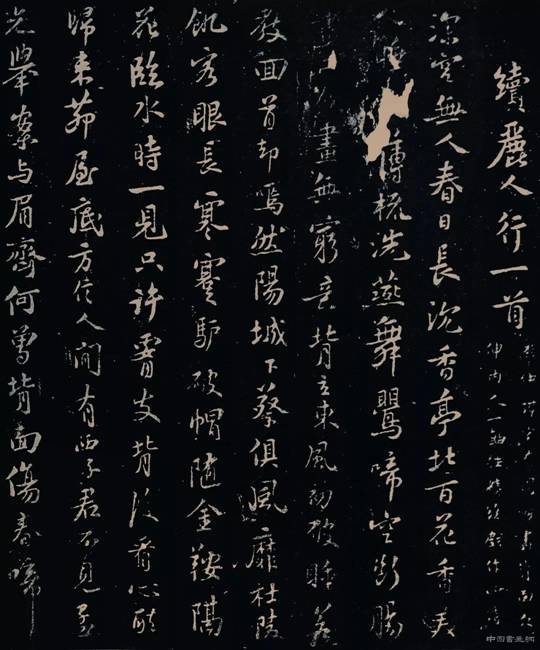 續麗人行一首
畫背面欠
伸內人一軸
深宮無人春日長沉香亭北百花香美
人睡薄梳洗燕舞鶯啼空斷腸
畫無窮意背立東風初破睡若
教回首却嫣然陽城下蔡俱風靡杜陵
飢客眼長寒蹇驢破帽隨金鞍隔
花臨水時一見只許腰支背後看心醉
歸來茅屋底方信人間有西子君不見孟
光舉案与眉齊何曾背面傷春啼
中国书画网